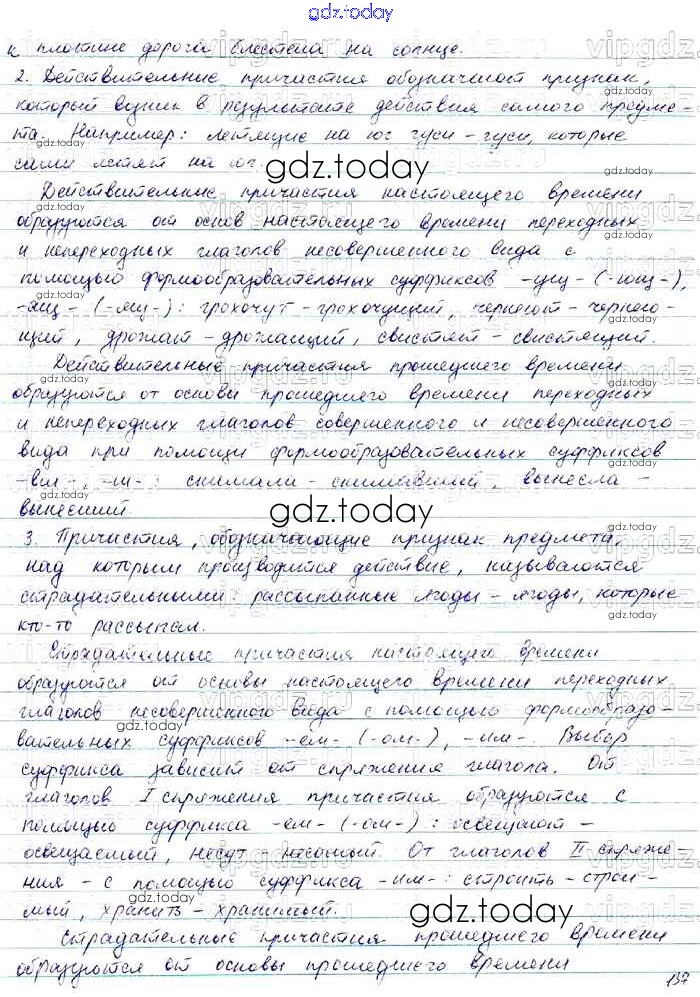 gdz.today
к плотине дорога блестела на солнце.
2. Действительные причастия обозначают признак,
который возник в результате действия самого предме-
та. Например: летящие на юг гуси – гуси, которые
сами летят на юг.
gdz.today
Действительные причастия настоящего времени
образуются от основ настоящего времени переходных
и непереходных глаголов несовершенного вида с
помощью формообразовательных суффиксов -ущ- (-ющ-),
-ащ- (-ящ-): грохочут – грохочущий, чернеют – чернею-
щий, дрожат – дрожащий, свистят – свистящий.
Действительные причастия прошедшего времени
образуются от основы прошедшего времени переходных
и непереходных глаголов совершенного и несовершенного
вида при помощи формообразовательных суффиксов
-вш-, -ш-: снимали – снимавший, вынесла –
вынесший.
gdz.today
3. Причастия, обозначающие признак предмета,
над которым производится действие, называются
страдательными: рассыпанные ягоды – ягоды, которые
кто-то рассыпал.
Страдательные причастия настоящего времени
образуются от основы настоящего времени переходных
глаголов несовершенного вида с помощью формообразо-
gdz.today
вательных суффиксов -ем- (-ом-), -им-. Выбор
суффикса зависит от спряжения глагола. От
глаголов I спряжения причастия образуются с
помощью суффикса -ем- (-ом-): освещают –
освещаемый, несут – несомый. От глаголов II спряже-
ния – с помощью суффикса -им-: строить – строи-
мый, хранить – хранимый.
gdz.today
Страдательные причастия прошедшего времени
образуются от основы прошедшего времени
137